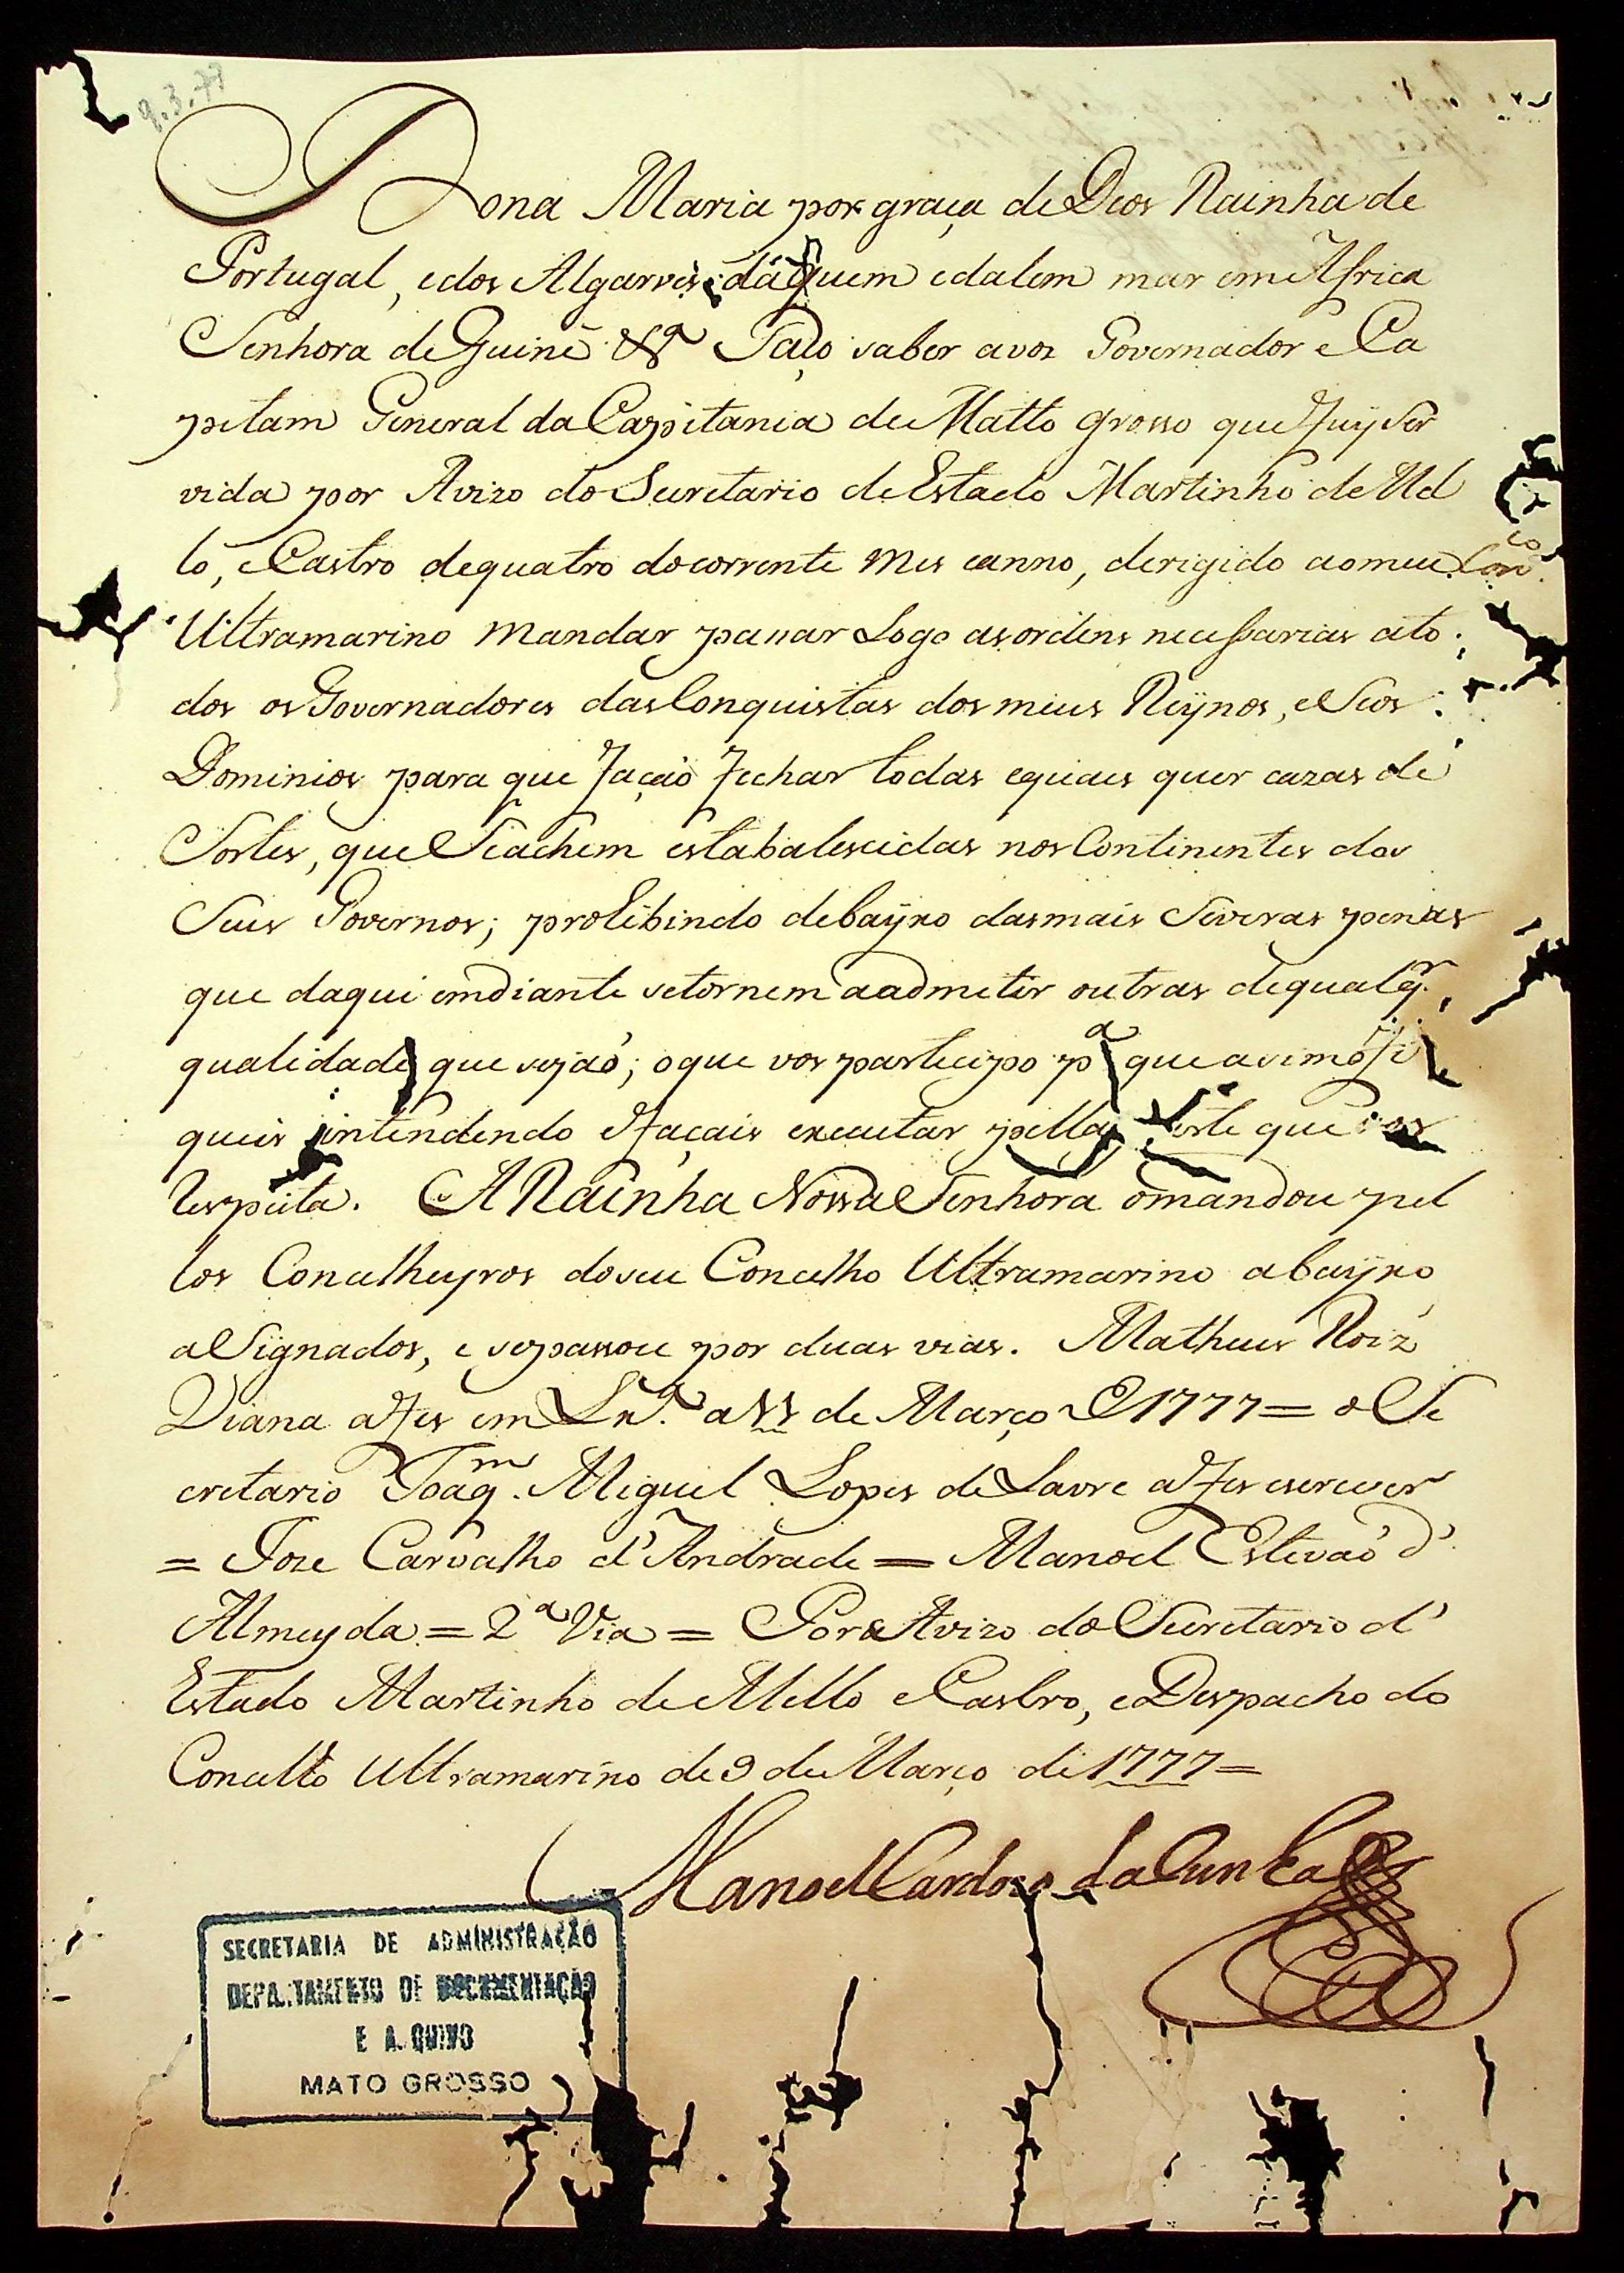 9.3.77
Dona Maria por graça de Deos Rainha de
Portugal, e dos Algarves, dáquem e dalem mar em Africa
Senhora de Guiné &ª Faço saber a vos Governador e Ca
pitam General da Capitania de Matto grosso que fuy Ser
vida por Avizo do Secretario de Estado Martinho de Mel
lo, e Castro de quatro do corrente mes e anno, derigido ao meu Conº
Ultramarino mandar passar Logo as ordens necessarias a to
dos os Governadores das Conquistas dos meus Reÿnos, e Seos
Dominios para que fação fechar todas e quaes quer cazas de
Sortes, que Se achem estabalescidas nos Continentes dos
Seus Governos; prohibindo debaÿxo das mais Severas penas
que daqui em diante se tornem a admetir outras de qualqr.
qualidade que sejaó; o que vos partecipo pª que assim o fi
queis intendendo e façais executar pella parte que vos
Respeita. A Rainha Nossa Senhora o mandou pel
los Concelheyros do seu Concelho Ultramarino abaÿxo
aSignados, e se passou por duas vias. Matheus Roiz
Viana a fes em Lxª. a 11 de Março de 1777 = o Se
cretario Joaqm. Miguel Lopes de Lavre a fes escrever
= Joze Carvalho d'Andrade = Manoel Estevaó d'
Almeyda = 2ª Via = Por Avizo do Secretario d'
Estado Martinho de Mello e Castro, e Despacho do
Concelho Ultramarino de 9 de Março de 1777 =
Manoel Cardoso da Cunha
SECRETARIA DE ADMINISTRAÇÃO
DEPARTAMENTO DE DOCUMENTAÇÃO
E ARQUIVO
MATO GROSSO